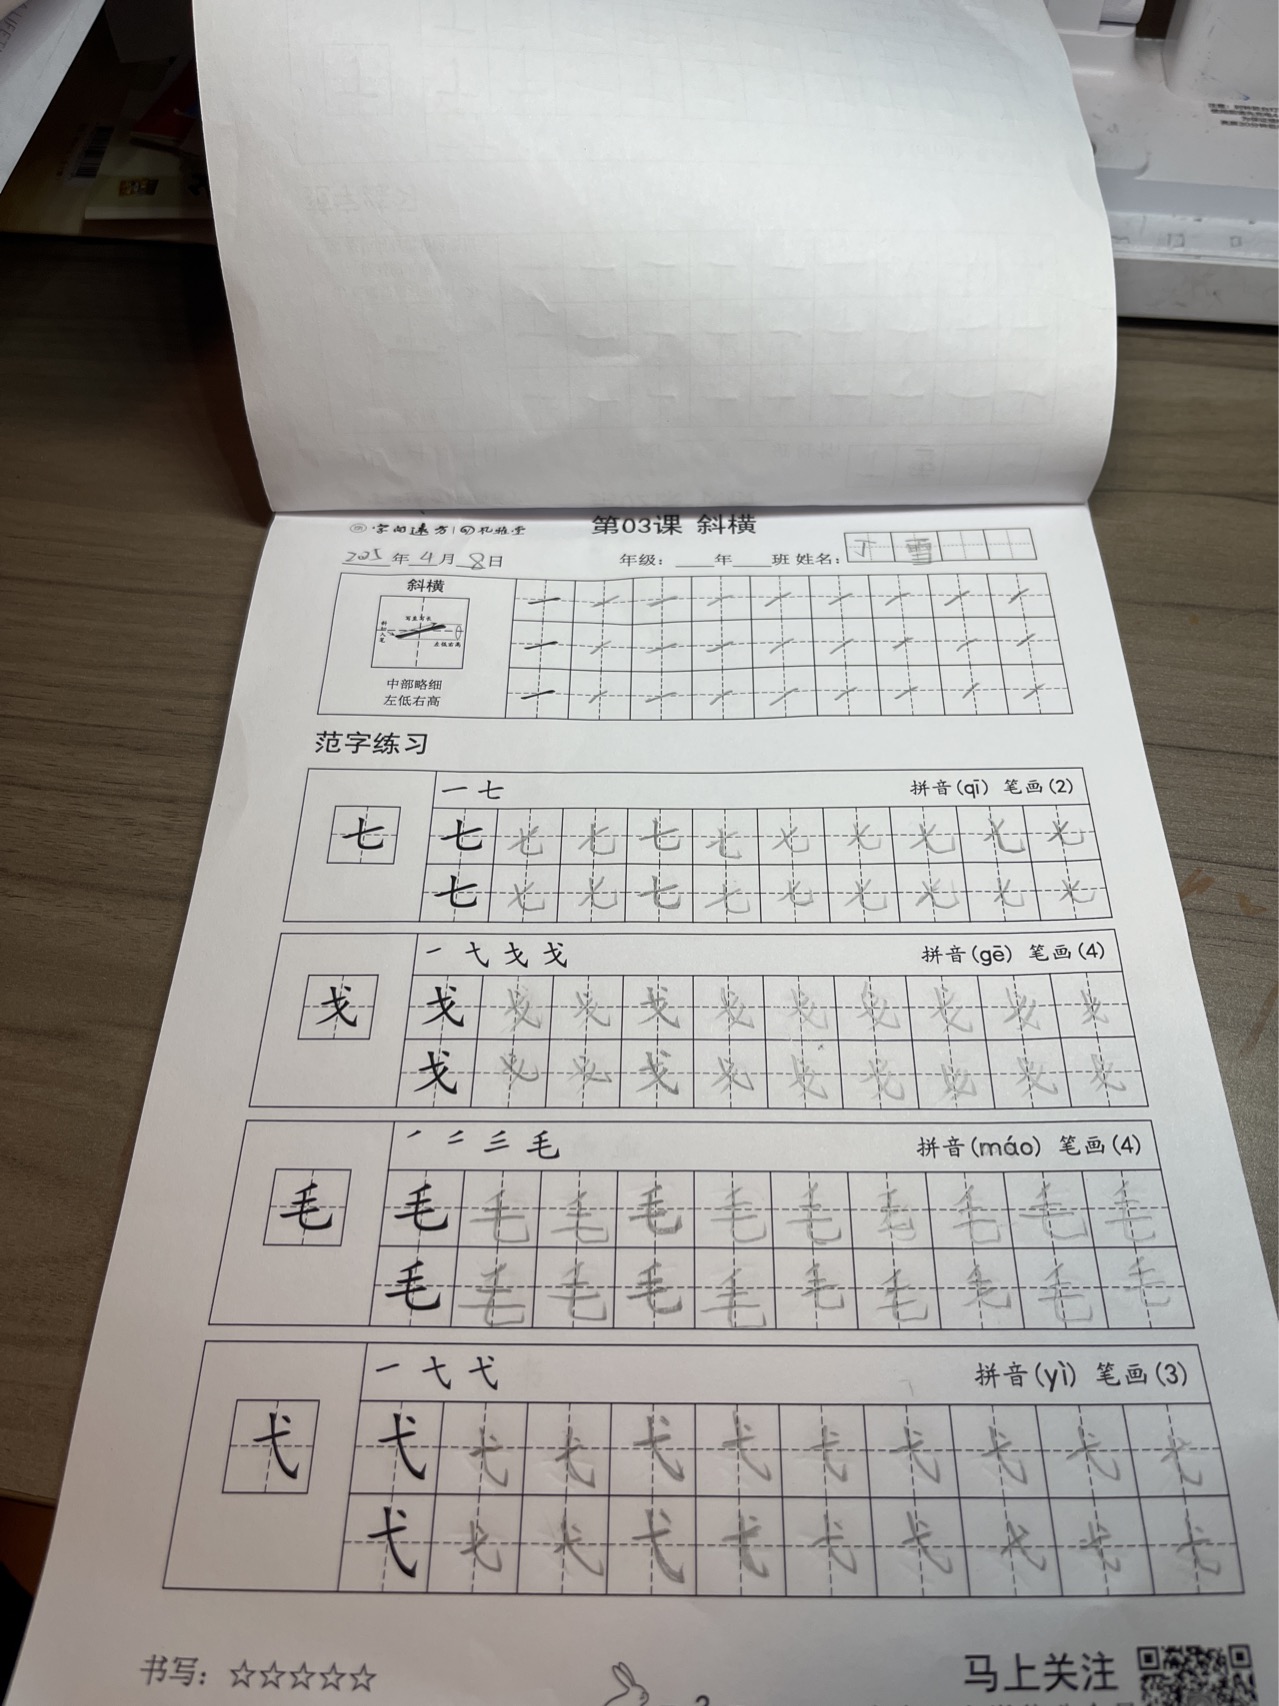 字的远方 孔雅堂
第03课 斜横
2025年4月8日 年级：____年____班 姓名：丁雪
斜横
左低右高
中部略细
左低右高
一 一 一 一 一 一 一 一 一
一 一 一 一 一 一 一 一 一
一 一 一 一 一 一 一 一 一
范字练习
一 七 拼音(qī) 笔画(2)
七
七 七 七 七 七 七 七 七 七 七
七 七 七 七 七 七 七 七 七 七
一 弋 戈 戈 拼音(gē) 笔画(4)
戈
戈 戈 戈 戈 戈 戈 戈 戈 戈 戈
戈 戈 戈 戈 戈 戈 戈 戈 戈 戈
拼音(máo) 笔画(4)
毛
毛 毛 毛 毛 毛 毛 毛 毛 毛 毛
毛 毛 毛 毛 毛 毛 毛 毛 毛 毛
一 弋 弋 拼音(yì) 笔画(3)
弋
弋 弋 弋 弋 弋 弋 弋 弋 弋 弋
弋 弋 弋 弋 弋 弋 弋 弋 弋 弋
书写：☆☆☆☆☆
马上关注